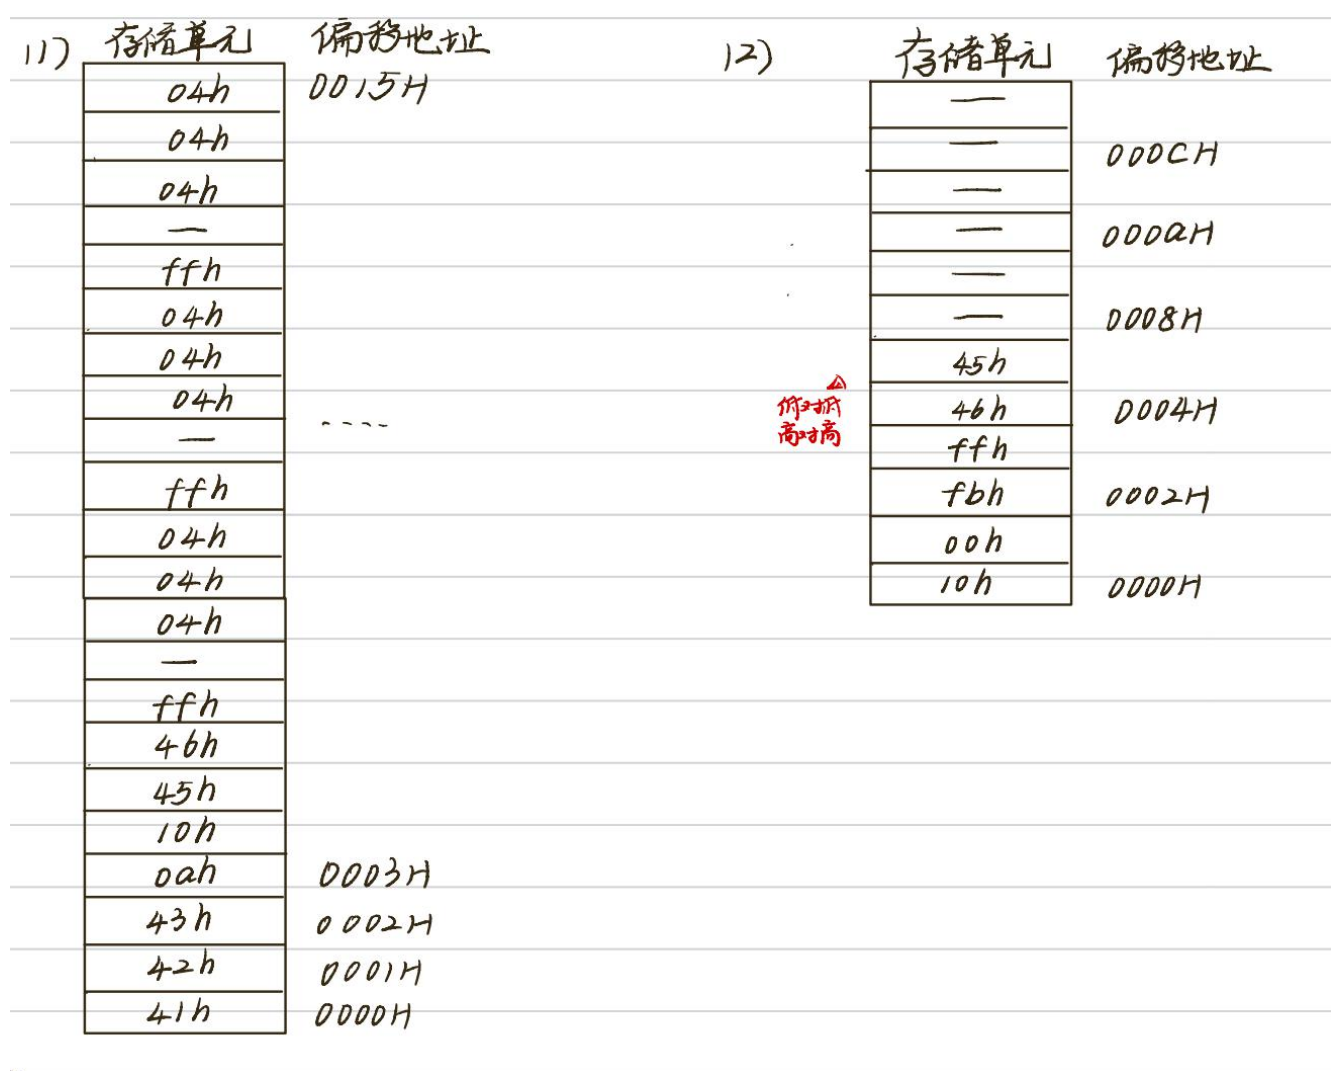 (1) 存储单元 偏移地址
04h 0015H
04h
04h
—
ffh
04h
04h
04h
— ----
ffh
04h
04h
04h
—
ffh
46h
45h
10h
0ah 0003H
43h 0002H
42h 0001H
41h 0000H
(2) 存储单元 偏移地址
—
— 000CH
—
— 000aH
—
— 0008H
45h
46h 0004H
ffh
fbh 0002H
00h
10h 0000H
低对低
高对高